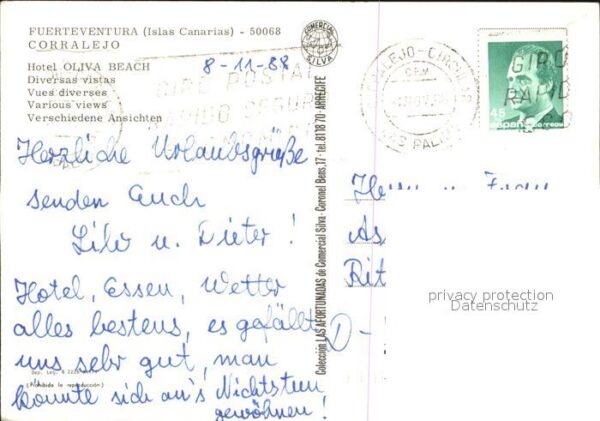 FUERTEVENTURA (Islas Canarias) - 50068
CORRALEJO
Hotel OLIVA BEACH
Diversas vistas
Vues diverses
Various views
Verschiedene Ansichten
8-11-88
Herzliche Urlaubsgrüße
senden Euch
Lilo u. Dieter!
Hotel, Essen, Wetter
alles bestens, es gefällt
uns sehr gut, man
könnte sich an's Nichtstun
gewöhnen!
Dep. Leg. B
(Prohibida la reproducción)
COMERCIAL
SILVA
Colección LAS AFORTUNADAS de Comercial Silva - Coronel Bens, 17 - tel. 81 18 70 - ARRECIFE
GIRO POSTAL
RAPIDO SEGURO
LAS PALMAS
GIRO
RAPID
45
España correos
Herrn u. Frau
As
Rit
D -
privacy protection
Datenschutz